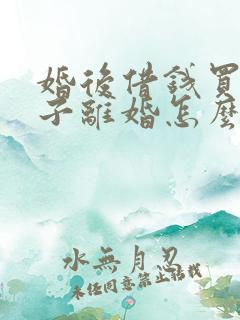 婚後借錢買
子離婚怎麼
水無月忍
未經同意禁止轉載